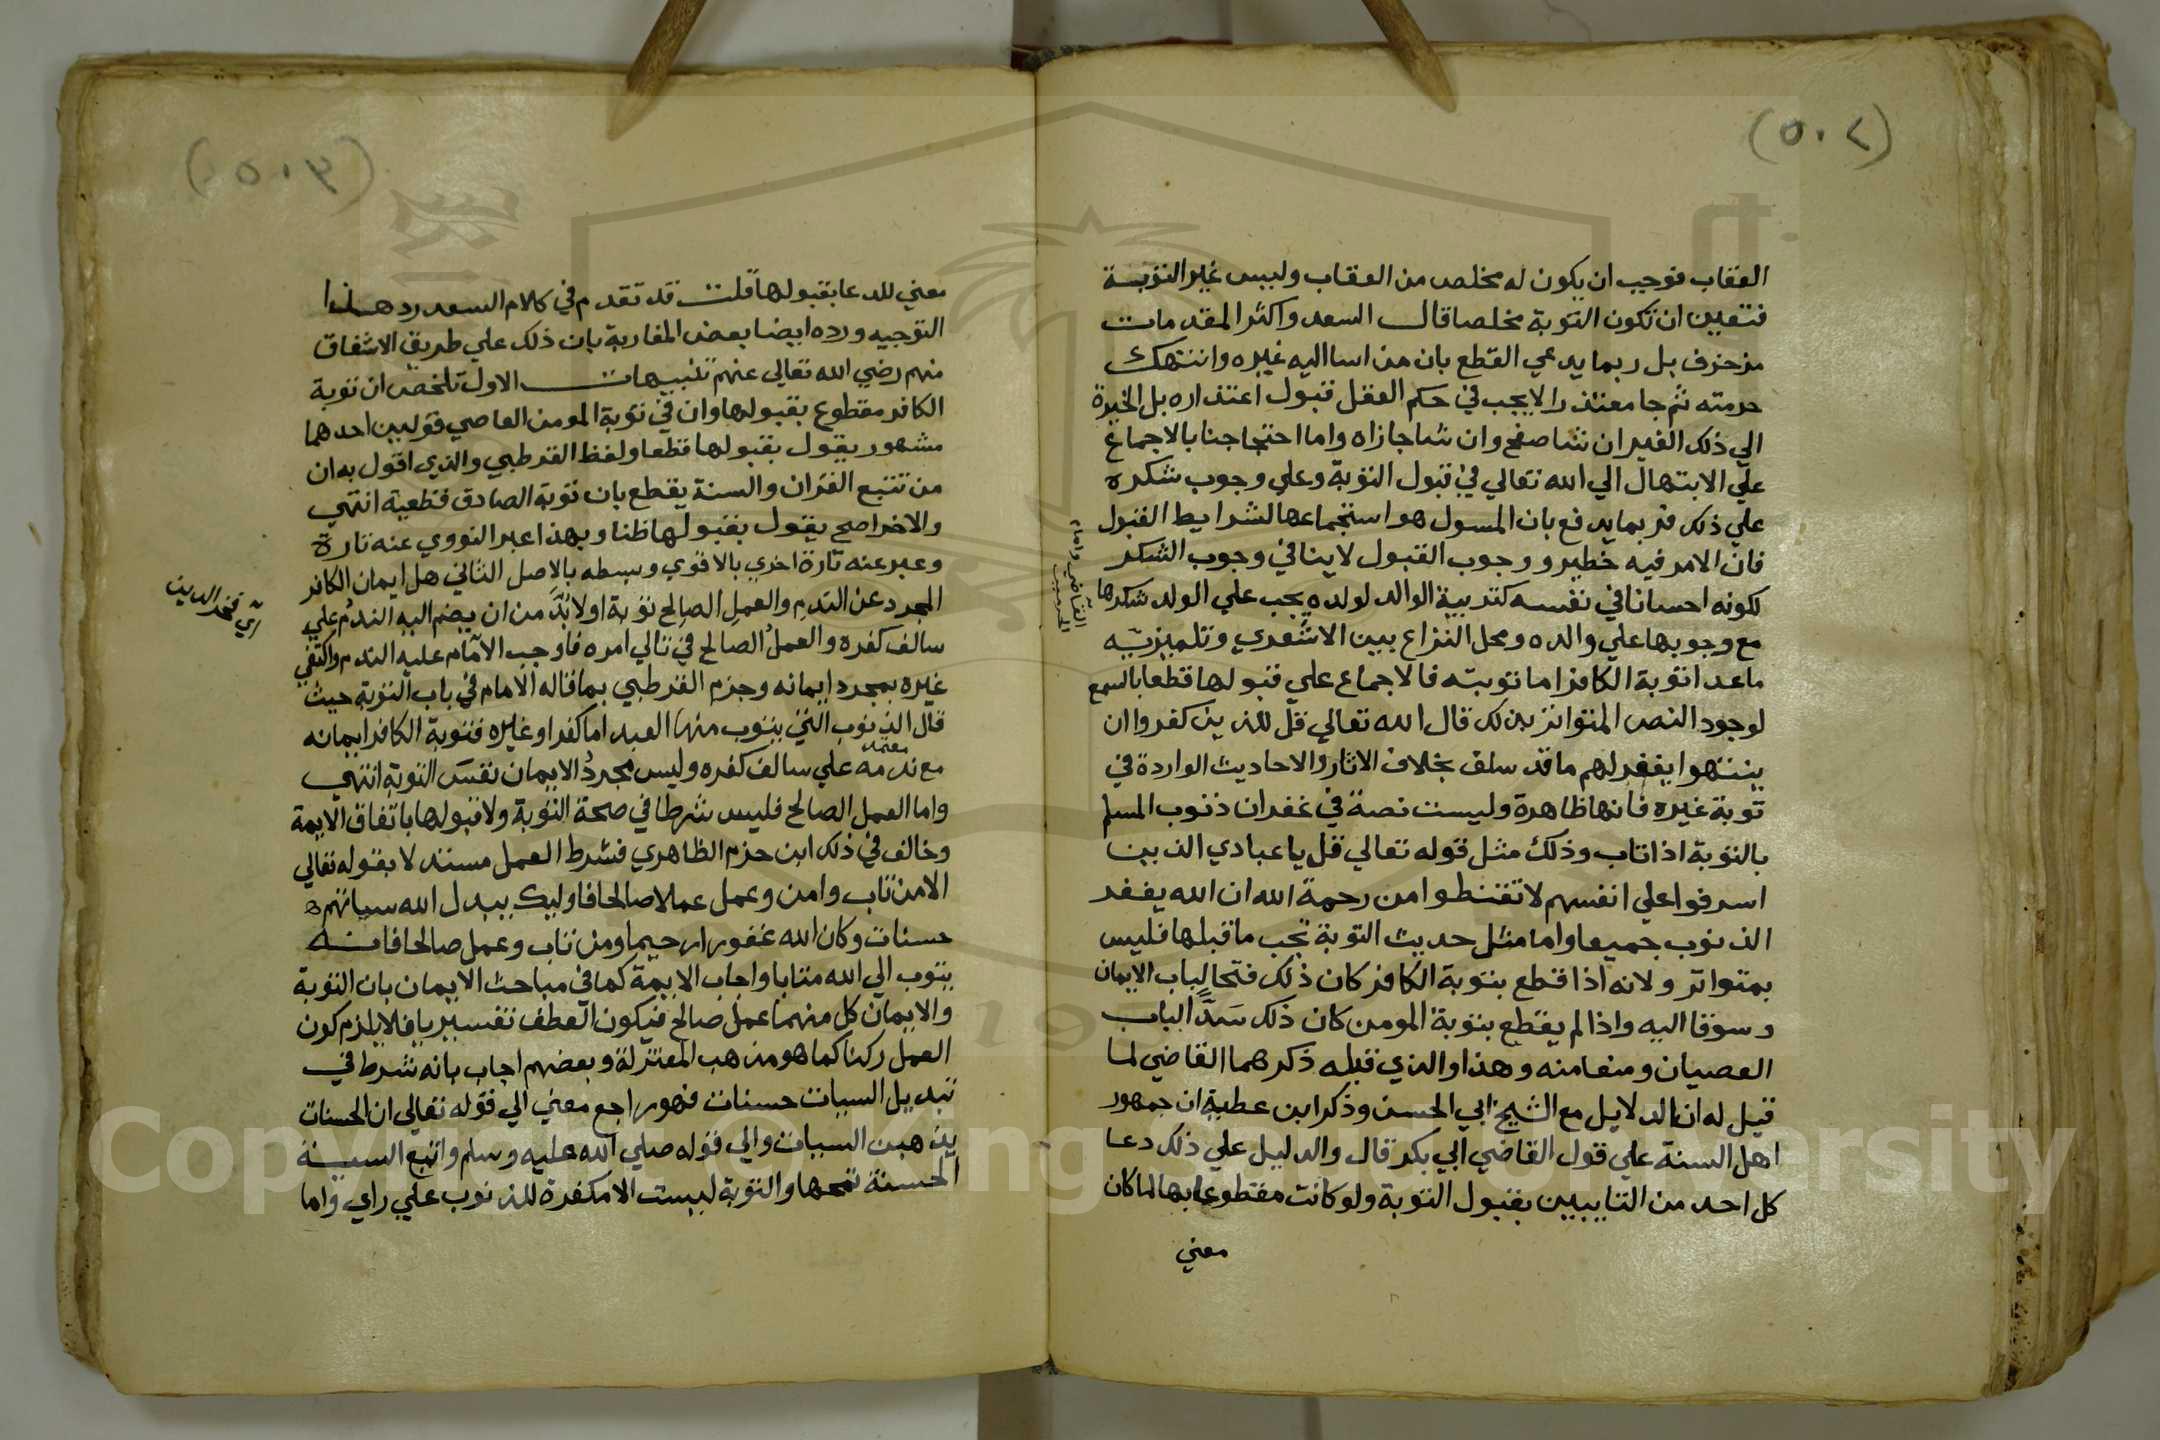 (٥٠٢)
العقاب فوجب ان يكون له مخلص من العقاب وليس غير التوبة
فتعين ان تكون التوبة مخلصا قال السعد واكثر المقدمات
مزخرف بل ربما يدعي القطع بان من اسا اليه غيره وانتهك
حرمته ثم جا معتذرا لا يجب في حكم العقل قبول اعتذاره بل الخيرة
الي ذلك الغير ان شا صفح وان شا جازاه واما احتجاجنا بالاجماع
علي الابتهال الي الله تعالي في قبول التوبة وعلي وجوب شكره
علي ذلك فربما يدفع بان المسول هو استجماعها لشرايط القبول
فان الامر فيه خطير ووجوب القبول لا ينافي وجوب الشكر
لكونه احسانا في نفسه كتربية الوالد لولده يجب علي الولد شكرها
مع وجوبها علي والده ومحل النزاع بين الاشعري وتلميزيه
القاضي وامام الحرمين
ما عدا توبة الكافر اما توبته فالاجماع علي قبولها قطعا بالسمع
لوجود النص المتواتر بذلك قال الله تعالي قل للذين كفروا ان
ينتهوا يغفر لهم ما قد سلف بخلاف الاثار والاحاديث الواردة في
توبة غيره فانها ظاهرة وليست نصة في غفران ذنوب المسلم
بالتوبة اذا تاب وذلك مثل قوله تعالي قل يا عبادي الذين
اسرفوا علي انفسهم لا تقنطوا من رحمة الله ان الله يغفر
الذنوب جميعا واما مثل حديث التوبة تجب ما قبلها فليس
بمتواتر ولانه اذا قطع بتوبة الكافر كان ذلك فتحا لباب الايمان
وسوقا اليه واذا لم يقطع بتوبة المومن كان ذلك سدا لباب
العصيان ومنعا منه وهذا والذي قبله ذكرهما القاضي لما
قيل له ان الدلايل مع الشيخ ابي الحسن وذكر ابن عطية ان جمهور
اهل السنة علي قول القاضي ابي بكر قال والدليل علي ذلك دعا
كل احد من التايبين بقبول التوبة ولو كانت مقطوعا بها لما كان
معني
(٥٠٣)
معني للدعا بقبولها قلت قد تقدم في كلام السعد رد هذا
التوجيه ورده ايضا بعض المغاربة بان ذلك علي طريق الاشفاق
منهم رضي الله تعالى عنهم تنبيهات الاول تلخص ان توبة
الكافر مقطوع بقبولها وان في توبة المومن العاصي قولين احدهما
مشهور يقول بقبولها قطعا ولفظ القرطبي والذي اقول به ان
من تتبع القران والسنة يقطع بان توبة الصادق قطعية انتهي
والاخر اصح يقول بقبولها ظنا وبهذا عبر النووي عنه تارة
وعبر عنه تارة اخري بالاقوي وبسطه بالاصل الثاني هل ايمان الكافر
المجرد عن الندم والعمل الصالح توبة اولا بد من ان يضم اليه الندم علي
سالف كفره والعمل الصالح في تالي امره فاوجب الامام عليه الندم واكتفي
اي فخر الدين
غيره بمجرد ايمانه وجزم القرطبي بما قاله الامام في باب التوبة حيث
قال الذنوب التي يتوب منها العبد اما كفر او غيره فتوبة الكافر ايمانه
مع ندمه علي سالف كفره وليس مجرد الايمان نفس التوبة انتهي
معتمد
واما العمل الصالح فليس شرطا في صحة التوبة ولا قبولها باتفاق الايمة
وخالف في ذلك ابن حزم الظاهري فشرط العمل مستدلا بقوله تعالي
الا من تاب وامن وعمل عملا صالحا فاوليك يبدل الله سياتهم
حسنات وكان الله غفورا رحيما ومن تاب وعمل صالحا فانه
يتوب الي الله متابا واجاب الايمة كما في مباحث الايمان بان التوبة
والايمان كل منهما عمل صالح فيكون العطف تفسيريا فلا يلزم كون
العمل ركنا كما هو مذهب المعتزلة وبعضهم اجاب بانه شرط في
تبديل السيات حسنات فهو راجع معني الي قوله تعالي ان الحسنات
يذهبن السيات والي قوله صلي الله عليه وسلم واتبع السيئة
الحسنة تمحها والتوبة ليست الا مكفرة للذنوب علي راي واما
Copyright © King Saud University